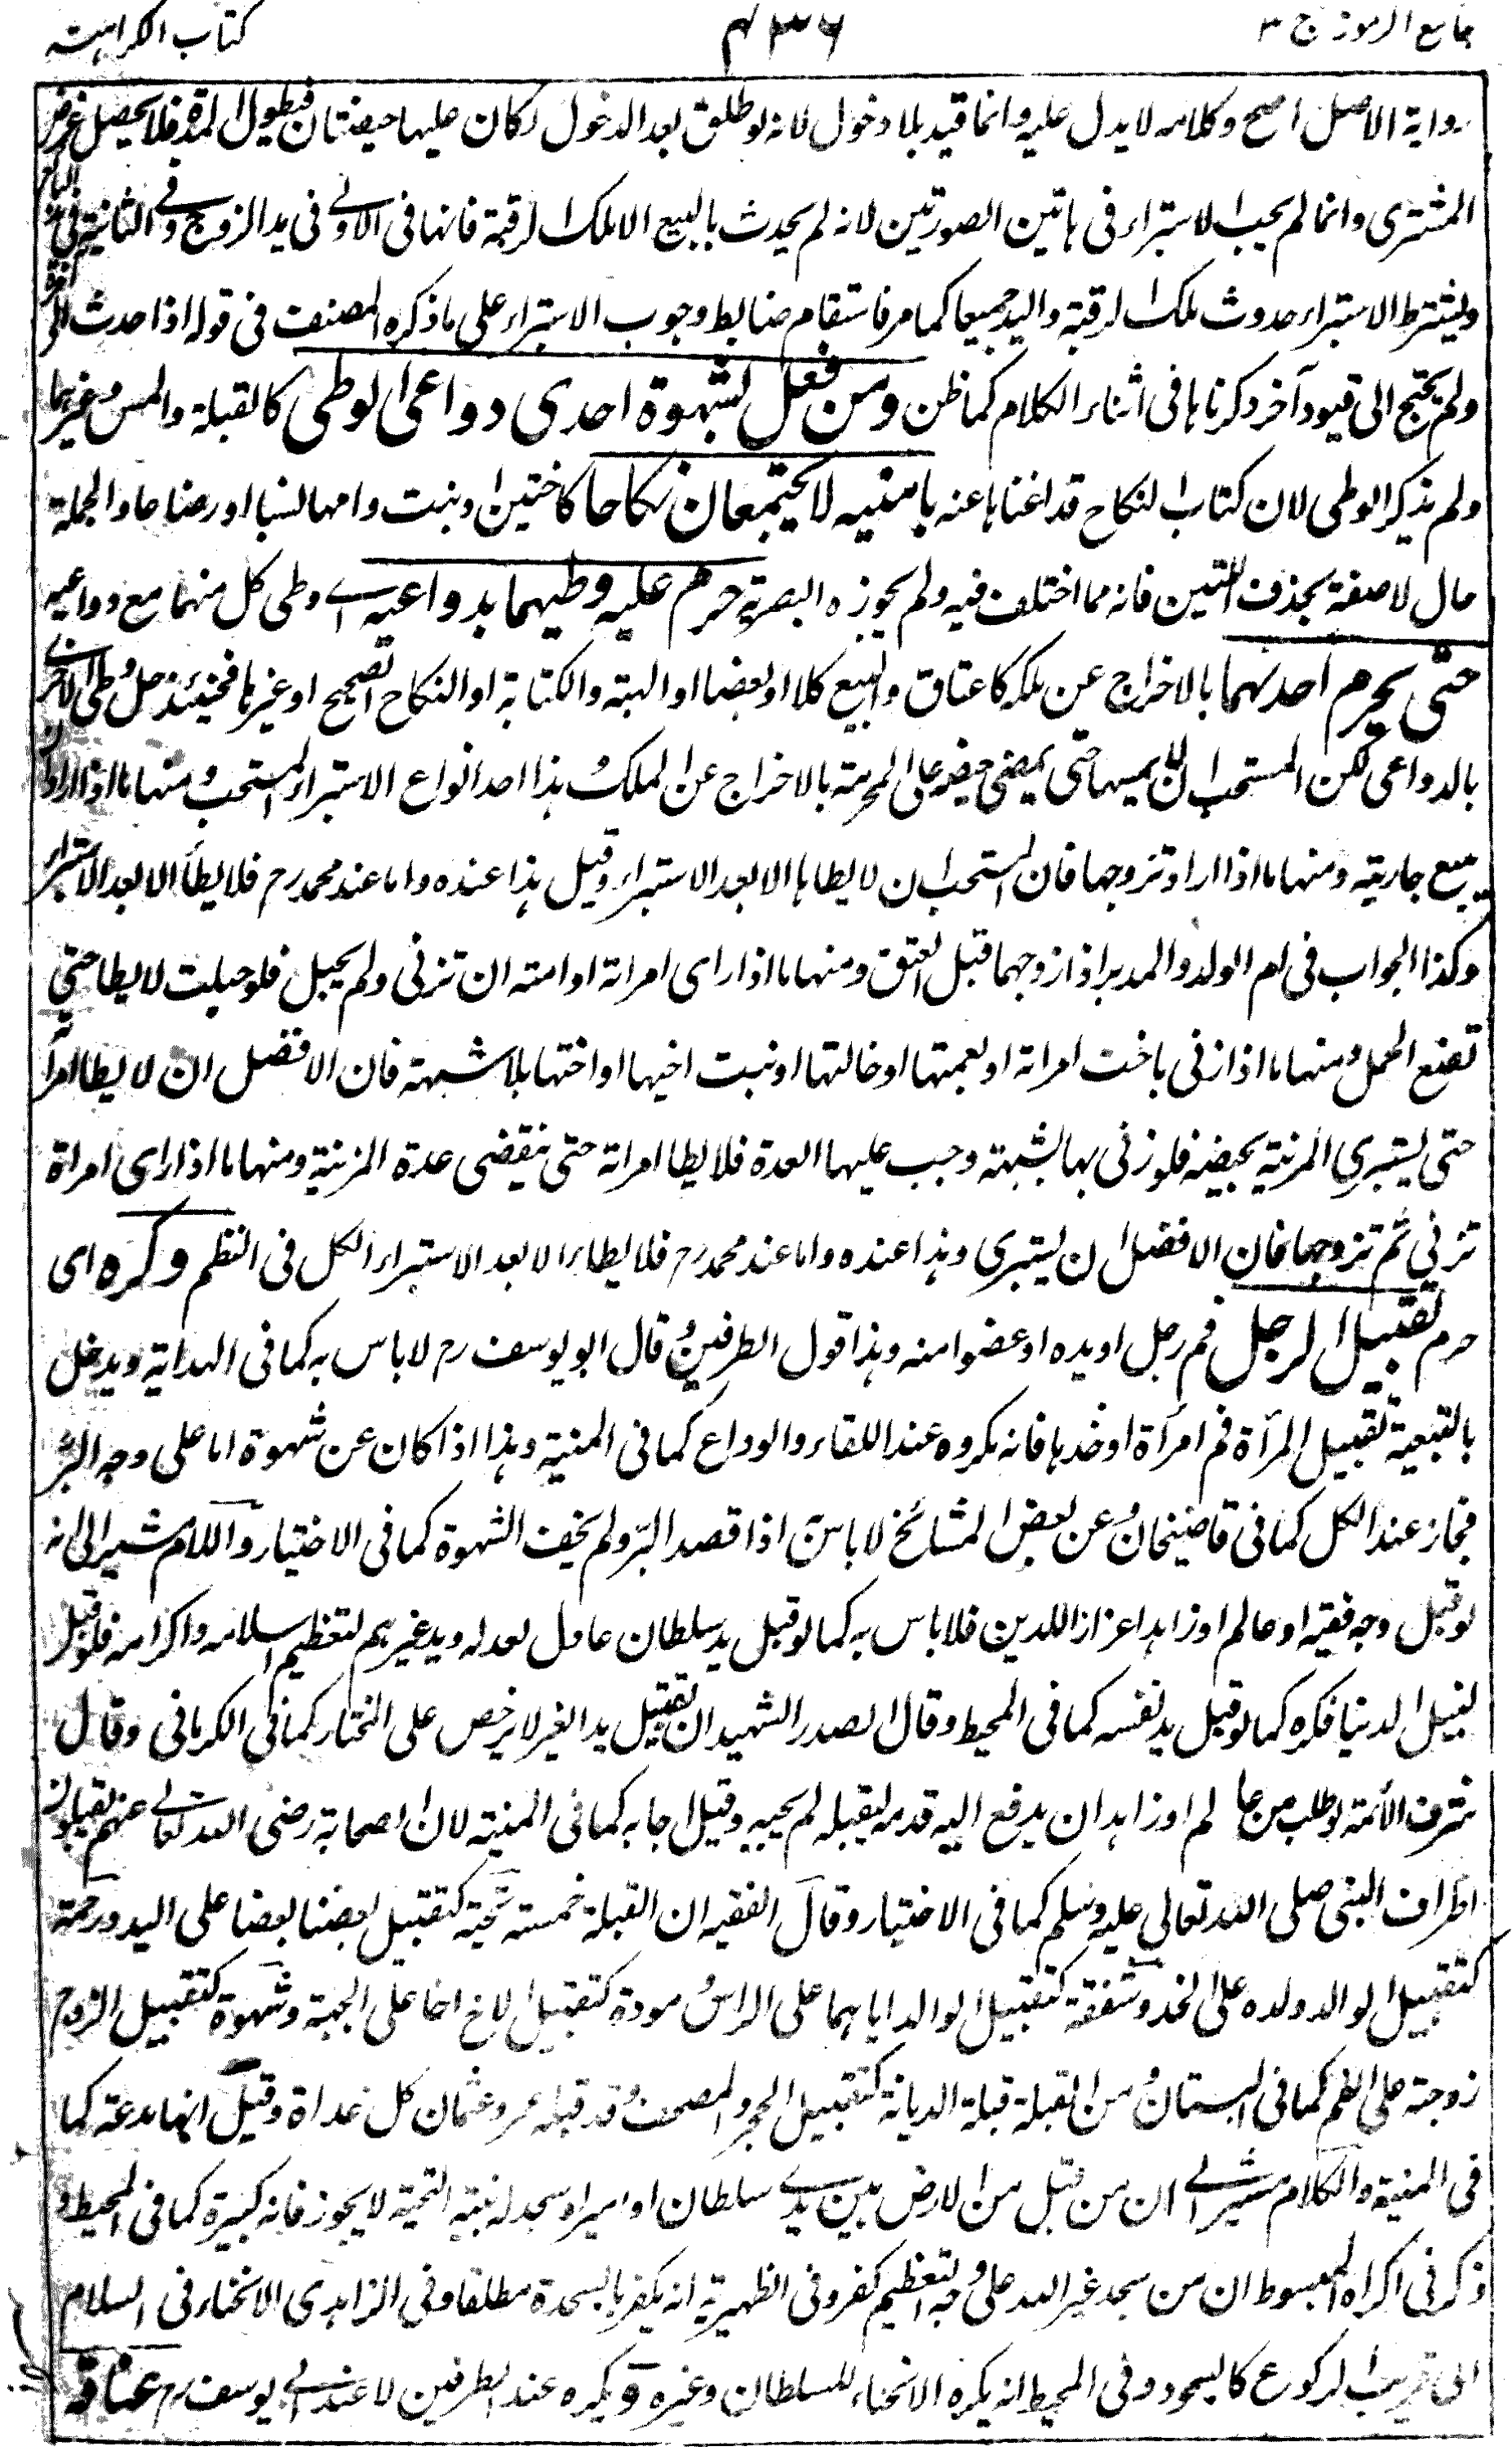 جامع الرموز ج ٣
٤٣٦
كتاب الكراهية
رواية الاصل اصح وكلامه لا يدل عليه وانما قيد بلا دخول لانه لو طلق بعد الدخول لكان عليها حيضتان فيطول المدة فلا يحصل غرض
المشتري وانما لم يجب الاستبراء في هاتين الصورتين لانه لم يحدث بالبيع الا ملك الرقبة فانها في الاولى في يد الزوج وفي الثانية في يد
ويشترط الاستبراء حدوث ملك الرقبة واليد جميعا كما مر فاستقام ضابط وجوب الاستبراء على ما ذكره المصنف في قوله اذا حدث
ولم يحتج الى قيود آخر ذكرناها في اثناء الكلام كما ظن ومن فعل بشهوة احدى دواعي الوطي كالقبلة والمس وغيرهما
ولم يذكر الوطي لان كتاب النكاح قد اغناها عنه بامتيه لا يجتمعان نكاحا كاختين او بنت وامها نسبا او رضاعا والجملة
حال لا صفة بحذف اللتين فانه مما اختلف فيه ولم يجوزه البصرية حرم عليه وطيهما بدواعيه اى وطى كل منهما مع دواعيه
حتى يحرم احدهما بالاخراج عن ملكه كاعتاق والبيع كلا او بعضا او الهبة والكتابة او النكاح الصحيح او غيرها فحينئذ حل وطى الاخرى
بالدواعي لكن المستحب ان لا يمسها حتى يمضي حيضة على المحرمة بالاخراج عن الملك وهذا احد انواع الاستبراء المستحب ومنها ما اذا اراد
بيع جاريته ومنها ما اذا اراد تزوجها فان المستحب ان لا يطاها الا بعد الاستبراء وقيل هذا عنده واما عند محمد رح فلا يطأ الا بعد الاستبراء
وكذا الجواب في ام الولد والمدبر اذا زوجهما قبل العتق ومنها ما اذا راى امراته او امته ان تزني ولم يحبل فلو حبلت لا يطا حتى
تضع الحمل ومنها ما اذا زنى باخت امراته او بعمتها او خالتها او بنت اخيها او اختها بلا شبهة فان الافضل ان لا يطا امرأته
حتى يستبرى المزنية بحيضة فلو زنى بها بشبهة وجب عليها العدة فلا يطا امراته حتى ينقضى عدة المزنية ومنها ما اذا راى امراة
تزني ثم تزوجها فان الافضل ان يستبرى وهذا عنده واما عند محمد رح فلا يطاء الا بعد الاستبراء الكل في النظم وكره اى
حرم تقبيل الرجل فم رجل او يده او عضوا منه وهذا قول الطرفين وقال ابو يوسف رح لا باس به كما في الهداية ويدخل
بالتبعية تقبيل المرأة فم امرأة او خدها فانه مكروه عند اللقاء والوداع كما في المنية وهذا اذا كان عن شهوة اما على وجه البر
فجاز عند الكل كما في قاضيخان وعن بعض المشائخ لا باس اذا قصد البر ولم يخف الشهوة كما في الاختيار واللام مشير الى انه
لو قبل وجه فقيه او عالم او زاهد اعزازا للدين فلا باس به كما لو قبل يد سلطان عادل لعدله ويد غيرهم لتعظيم اسلامه واكرامه فلو قبل
لنيل الدنيا فكره كما لو قبل يد نفسه كما في المحيط وقال الصدر الشهيد ان تقبيل يد الغير لا يرخص على المختار كما في الكرماني وقال
شرف الائمة لو طلب من عالم او زاهد ان يدفع اليه قدمه ليقبله لم يجبه وقيل اجابه كما في المنية لان الصحابة رضى الله تعالى عنهم يقبلون
اطراف النبي صلى الله تعالى عليه وسلم كما في الاختيار وقال الفقيه ان القبلة خمسة تحية كتقبيل بعضنا بعضا على اليد ورحمة
كتقبيل الوالد ولده على الخد وشفقة كتقبيل الوالد اياهما على الراس ومودة كتقبيل الاخ اخا على الجبهة وشهوة كتقبيل الزوج
زوجته على الفم كما في البستان ومن القبلة قبلة الديانة كتقبيل الحجر والمصحف وقد قبله عمر وعثمان كل غداة وقيل انها بدعة كما
في المنية والكلام مشير الى ان من قبل من الارض بين يدي سلطان او امير او سجد له بنية التحية لا يجوز فانه كبيرة كما في المحيط و
ذكر في اكراه المبسوط ان من سجد غير الله على وجه التعظيم كفر وفي الظهيرية انه يكفر بالسجدة مطلقا وفي الزاهدي الانحناء في السلام
الى قريب الركوع كالسجود وفي المحيط انه يكره الانحناء للسلطان وغيره ويكره عند الطرفين لا عند ابي يوسف رح عناقه